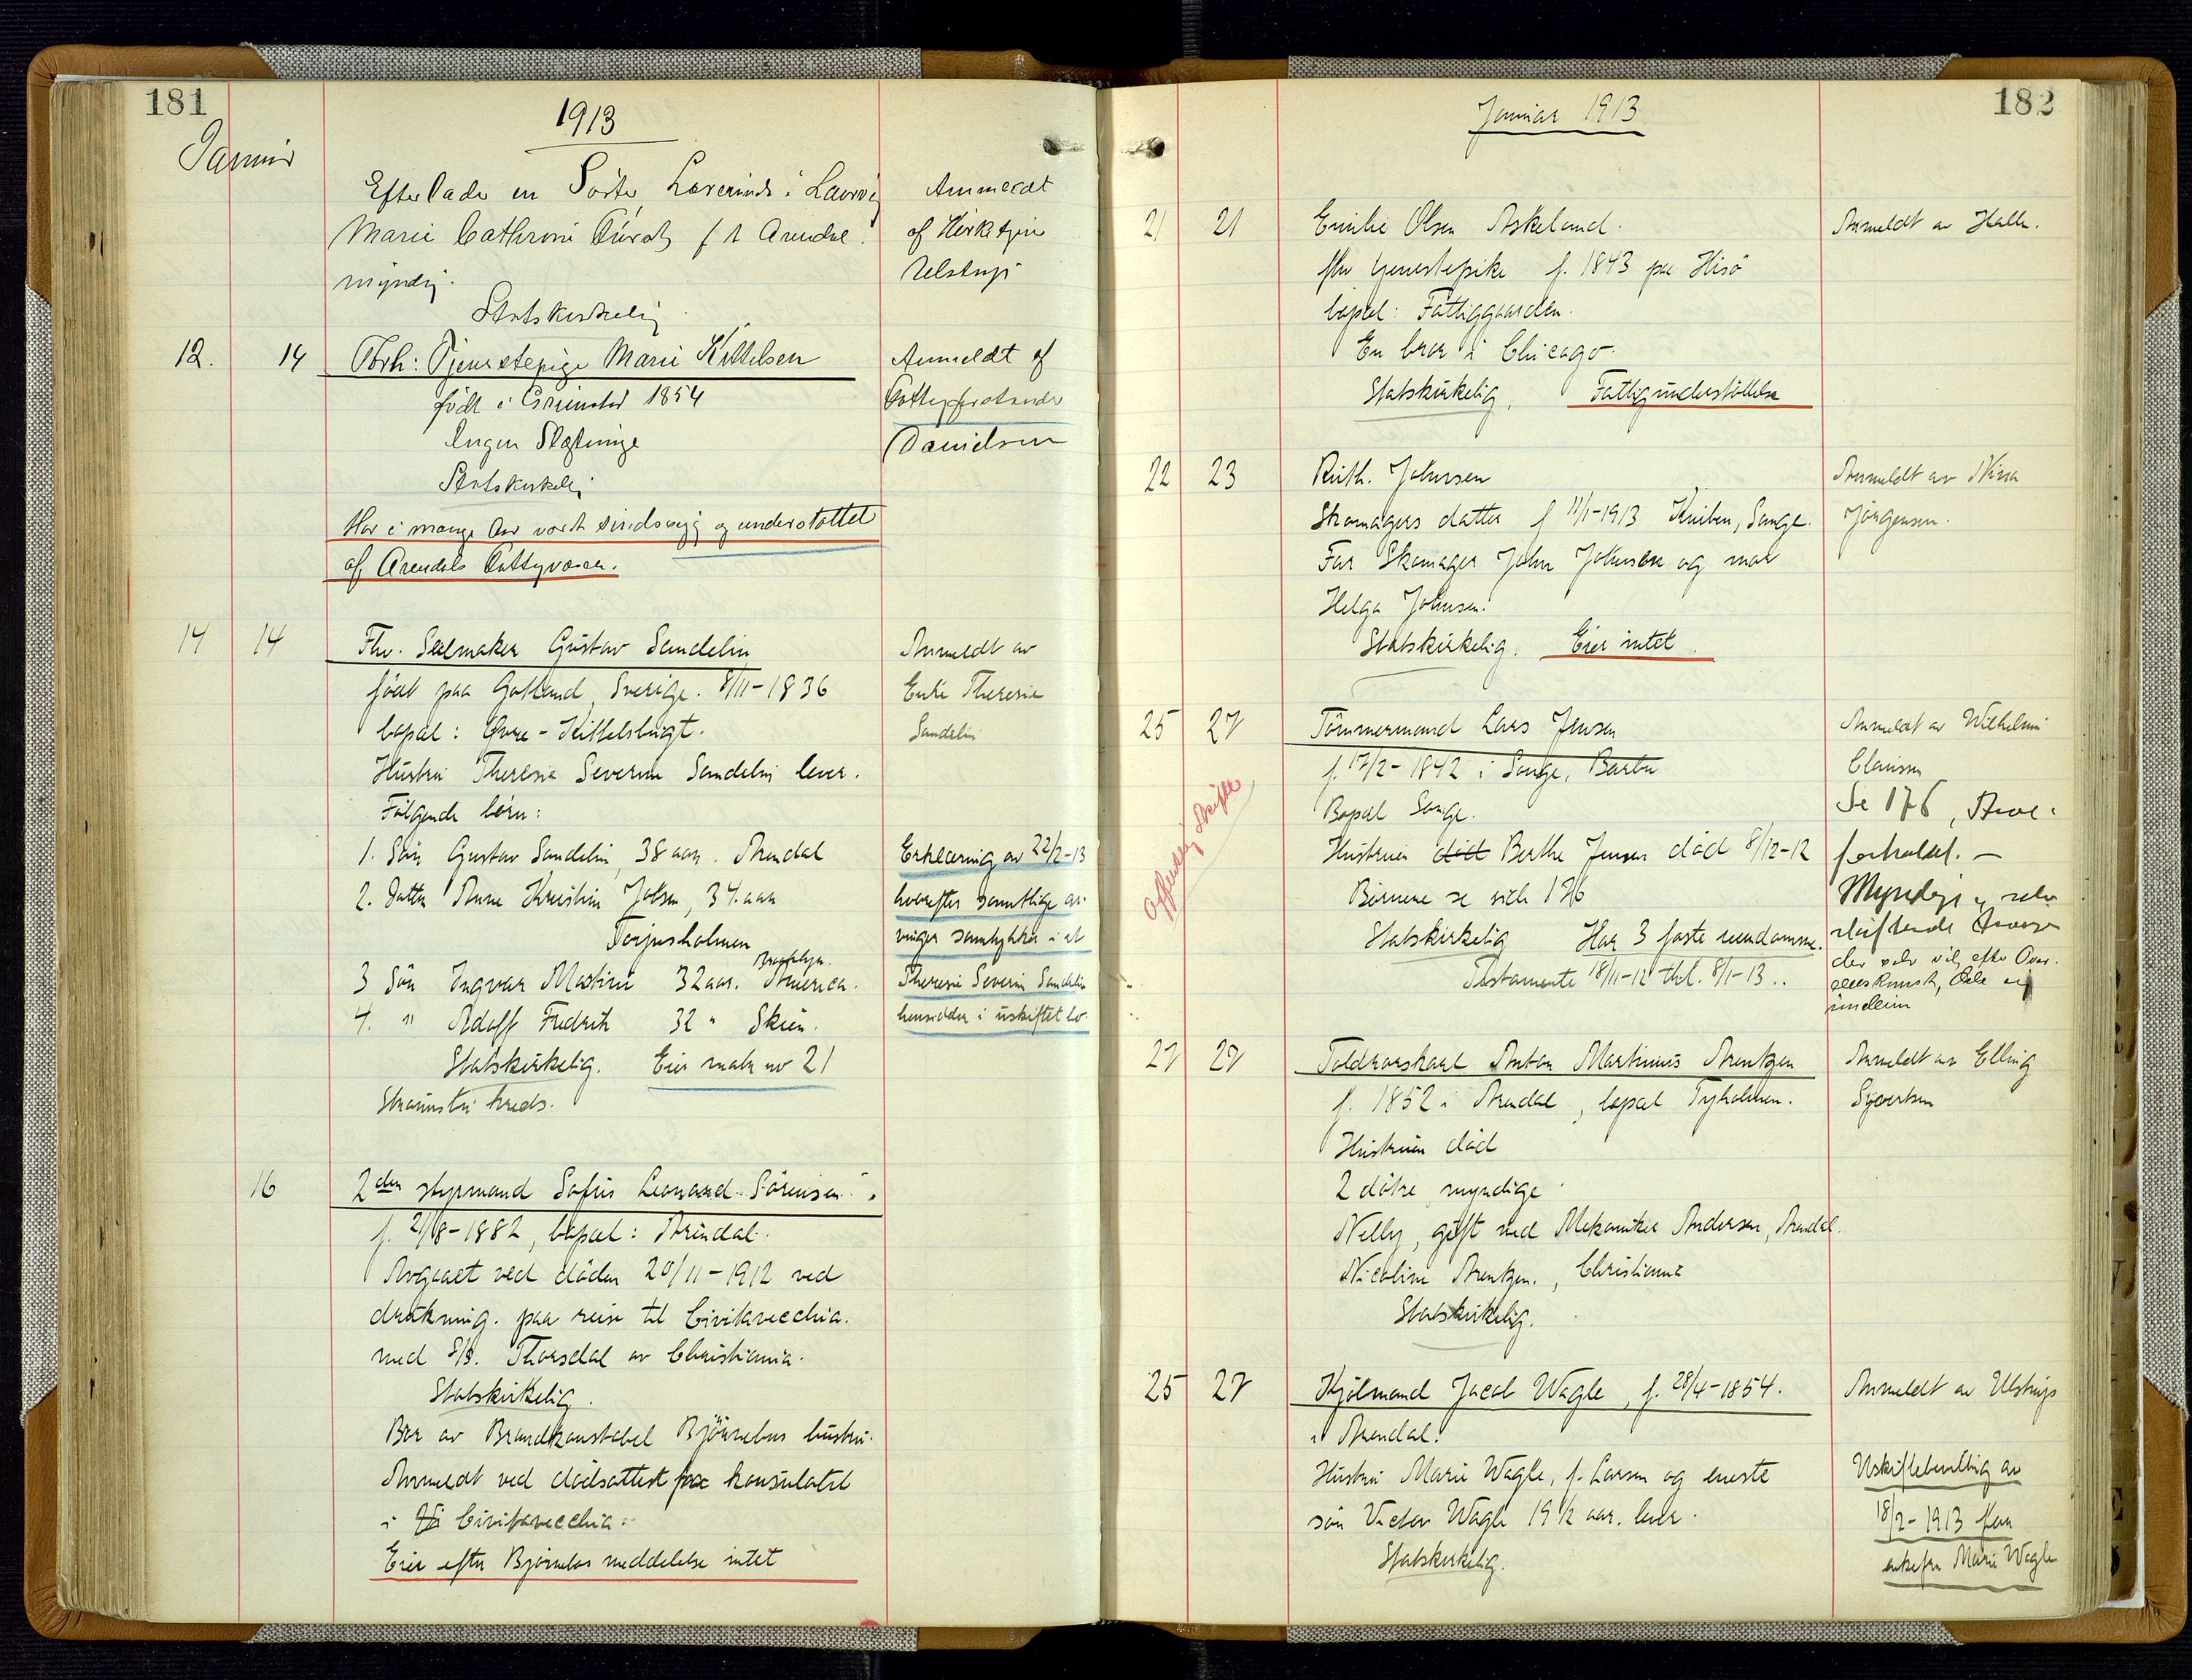 181
1913
Januar
Efterlader en Søster, Lærerinde i Laurvig
Marie Cathrine f. i Arendal
myndig.
Statskirkelig
Anmeldt
af Kirketjener
Ulstrup
12. 14 Forh: Tjenestepige Marie Kittelsen
født i Grimstad 1854
Ingen Slægtninge
Statskirkelig
Har i mange Aar været sindssyg og understøttet
af Arendals Fattigvæsen.
Anmeldt af
Fattigforstander
Danielsen
14 14 Fhv. Seilmaker Gustav Sandelin
født paa Gotland, Sverige. 8/11-1836
bopæl: Øvre-Kittelsbugt.
Hustru Theresie Severine Sandelin lever.
Følgende børn:
1. Søn Gustav Sandelin, 38 aar. Arendal
2. Datter Anna Kristine Jolsen, 34 aar
Torjusholmen
3 Søn Ingvar Martin 32 aar. Brooklyn. America.
4. " Adolf Fredrik 32 " Skien.
Statskirkelig. Eier matr no 21
Strømsbu kreds.
Anmeldt av
Enke Theresie
Sandelin
Erklæring av 22/2-13
hvorefter samtlige ar-
vinger samtykker i at
Theresie Severin Sandelin
hensidder i uskiftet bo.
16 2den styrmand Sofus Leonard Sørensen.
f. 21/8-1882, bopæl: Arendal.
Avgaaet ved døden 20/11-1912 ved
drukning. paa reise til Civitavecchia.
med S/S. Thorsdal av Christiania.
Statskirkelig.
Bror av Brandkonstabel Bjørnebos hustru.
Anmeldt ved dødsattest fra konsulatet
i Civitavecchia.
Eier efter Bjørnebos meddelelse intet
182
Januar 1913
21 21 Emilie Olsen Askeland.
fhv tjenestepike f. 1843 paa Hisø
bopæl: Fattiggaarden.
En bror i Chicago.
Statskirkelig. Fattigunderstøttelse
Anmeldt av Halle.
22 23 Ruth. Johnsen
Skomagers datter f 11/1-1913 Kniben, Songe.
Far Skomager John Johnsen og mor
Helga Johnsen.
Statskirkelig. Eier intet.
Anmeldt av Nina
Jørgensen.
25 27 Tømmermand Lars Jensen
f. 17/2-1842 i Songe, Barbu
Bopæl Songe.
Hustruen død Berthe Jensen død 8/12-12
Børnene se side 176
Statskirkelig Har 3 faste eiendomme.
Testamente 18/11-12 thl. 8/1-13 ..
Offentlig Skifte
Anmeldt av Wilhelmine
Clausen
Se 176, Arve-
forholdet. —
Myndige og selv
skiftende Arvinger
der selv vil efter Over-
eenskomst, dele sig
imellem
27 27 Toldrorskarl Anton Martinius Arentzen
f. 1852 i Arendal, bopæl Tyholmen.
Hustruen død
2 døtre myndige
Nelly, gift med Mekaniker Andersen, Arendal.
Nicoline Arentzen., Christiania
Statskirkelig.
Anmeldt av Elling
Syvertsen
25 27 Kjølmand Jacob Wagle, f. 28/4-1854.
i Arendal.
Hustru Marie Wagle, f. Larsen og eneste
søn Victor Wagle 19 1/2 aar. lever.
Statskirkelig.
Anmeldt av Ulstrup
Uskiftebevilling av
18/2-1913 for
enkefru Marie Wagle